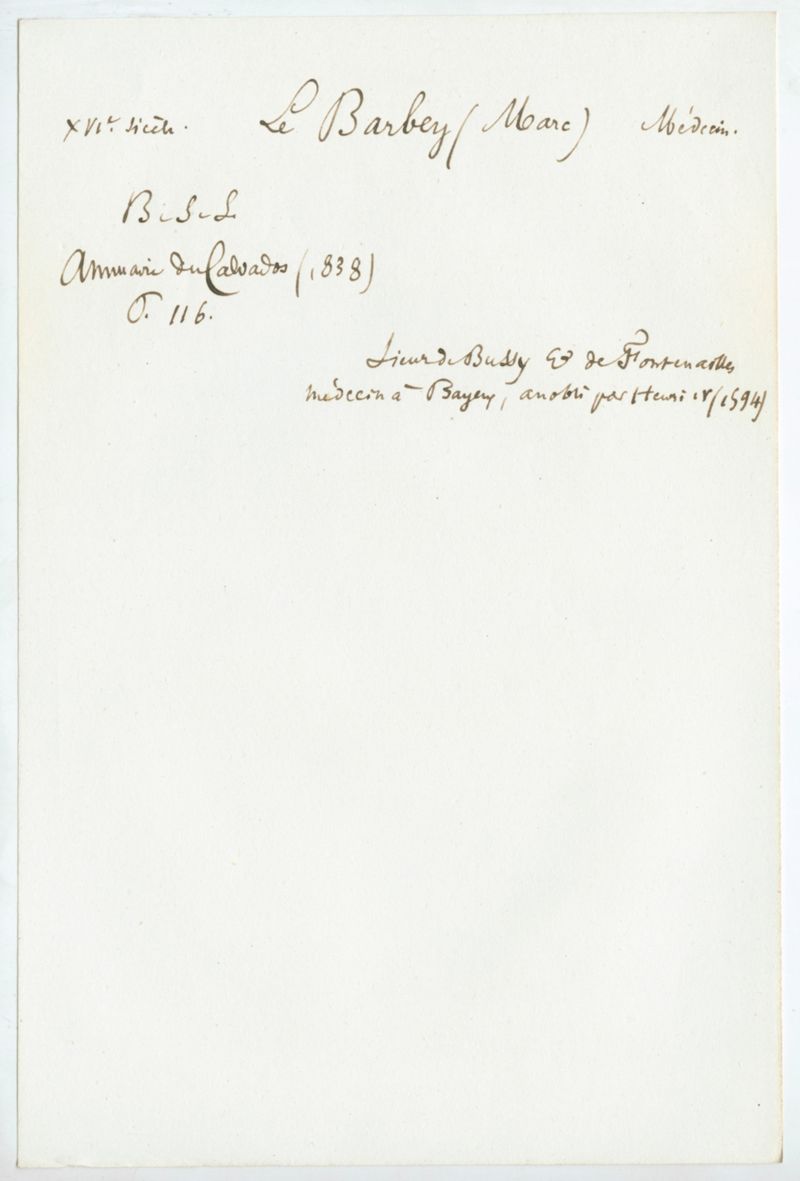 XVIe siècle. Le Barbey (Marc) Médecin.
B. S. L.
Annuaire du Calvados (1838)
P. 116.
Sieur de Bussy & de Fontenailles
médecin à Bayeux, anobli par Henri IV (1594)